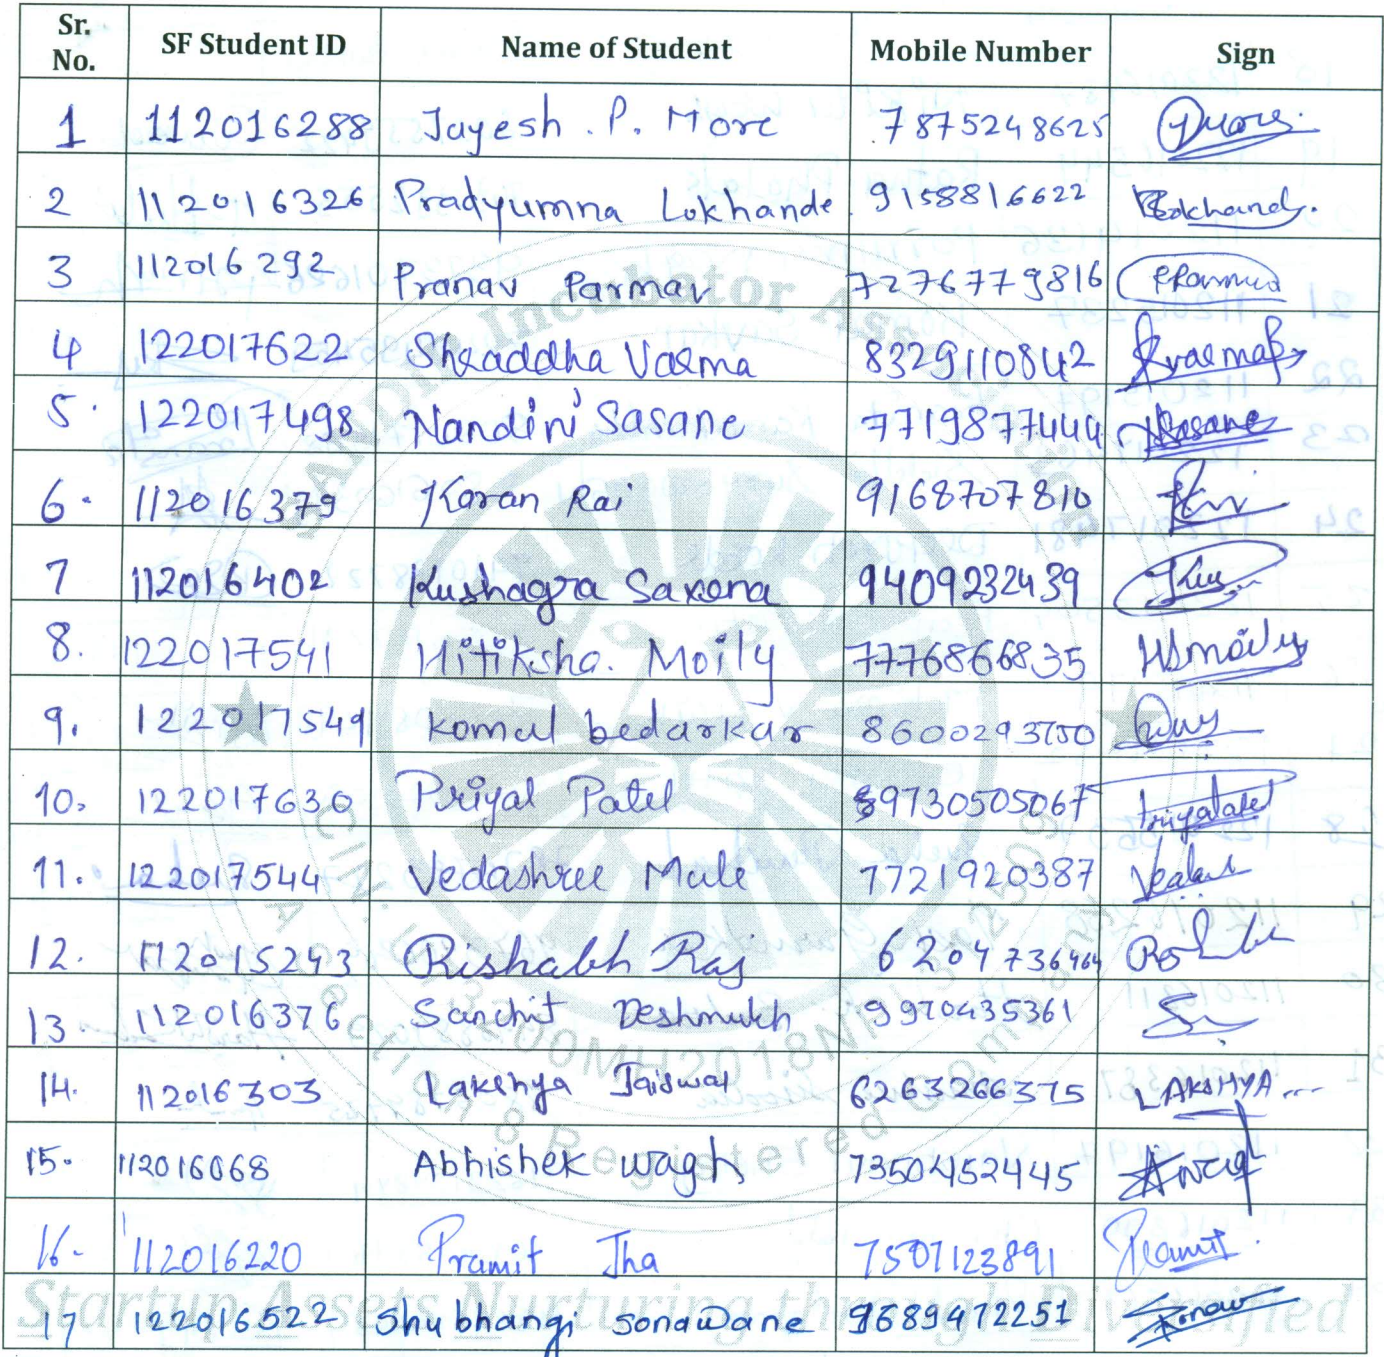 Sr. No. SF Student ID Name of Student Mobile Number Sign
1 112016288 Jayesh . P. More 7875248625
2 112016326 Pradyumna Lokhande 9158816622
3 112016292 Pranav Parmar 7276779816
4 122017622 Shraddha Varma 8329110842
5 122017498 Nandini Sasane 7719877444
6 112016379 Karan Rai 9168707810
7 112016402 Kushagra Saxena 9409232439
8. 122017541 Hitiksha. Moily 7776866835
9. 122017549 Komal bedarkar
10. 122017630 Priyal Patel 9730505067
11. 122017544 Vedashree Mule 7721920387
12. 112015243 Rishabh Raj 6204736464
13 112016376 Sanchit Deshmukh 9970435361
14. 112016303 Lakshya Jaiswal 6263266375 LAKSHYA
15. 112016068 Abhishek Wagh 7350452445
16- 112016220 Pramit Jha 7507123891 Pramit
17 122016522 Shubhangi Sonawane 9689472251
SANDIP Incubator
CIN:
A Section 8 Registered Company
Startup Assets Nurturing through Diversified